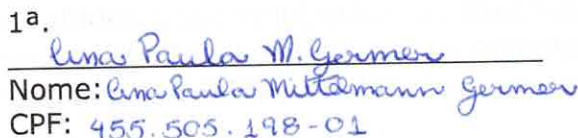 1ª.
Ana Paula M. Germer
Nome: Ana Paula Mittelmann Germer
CPF: 455.505.198-01